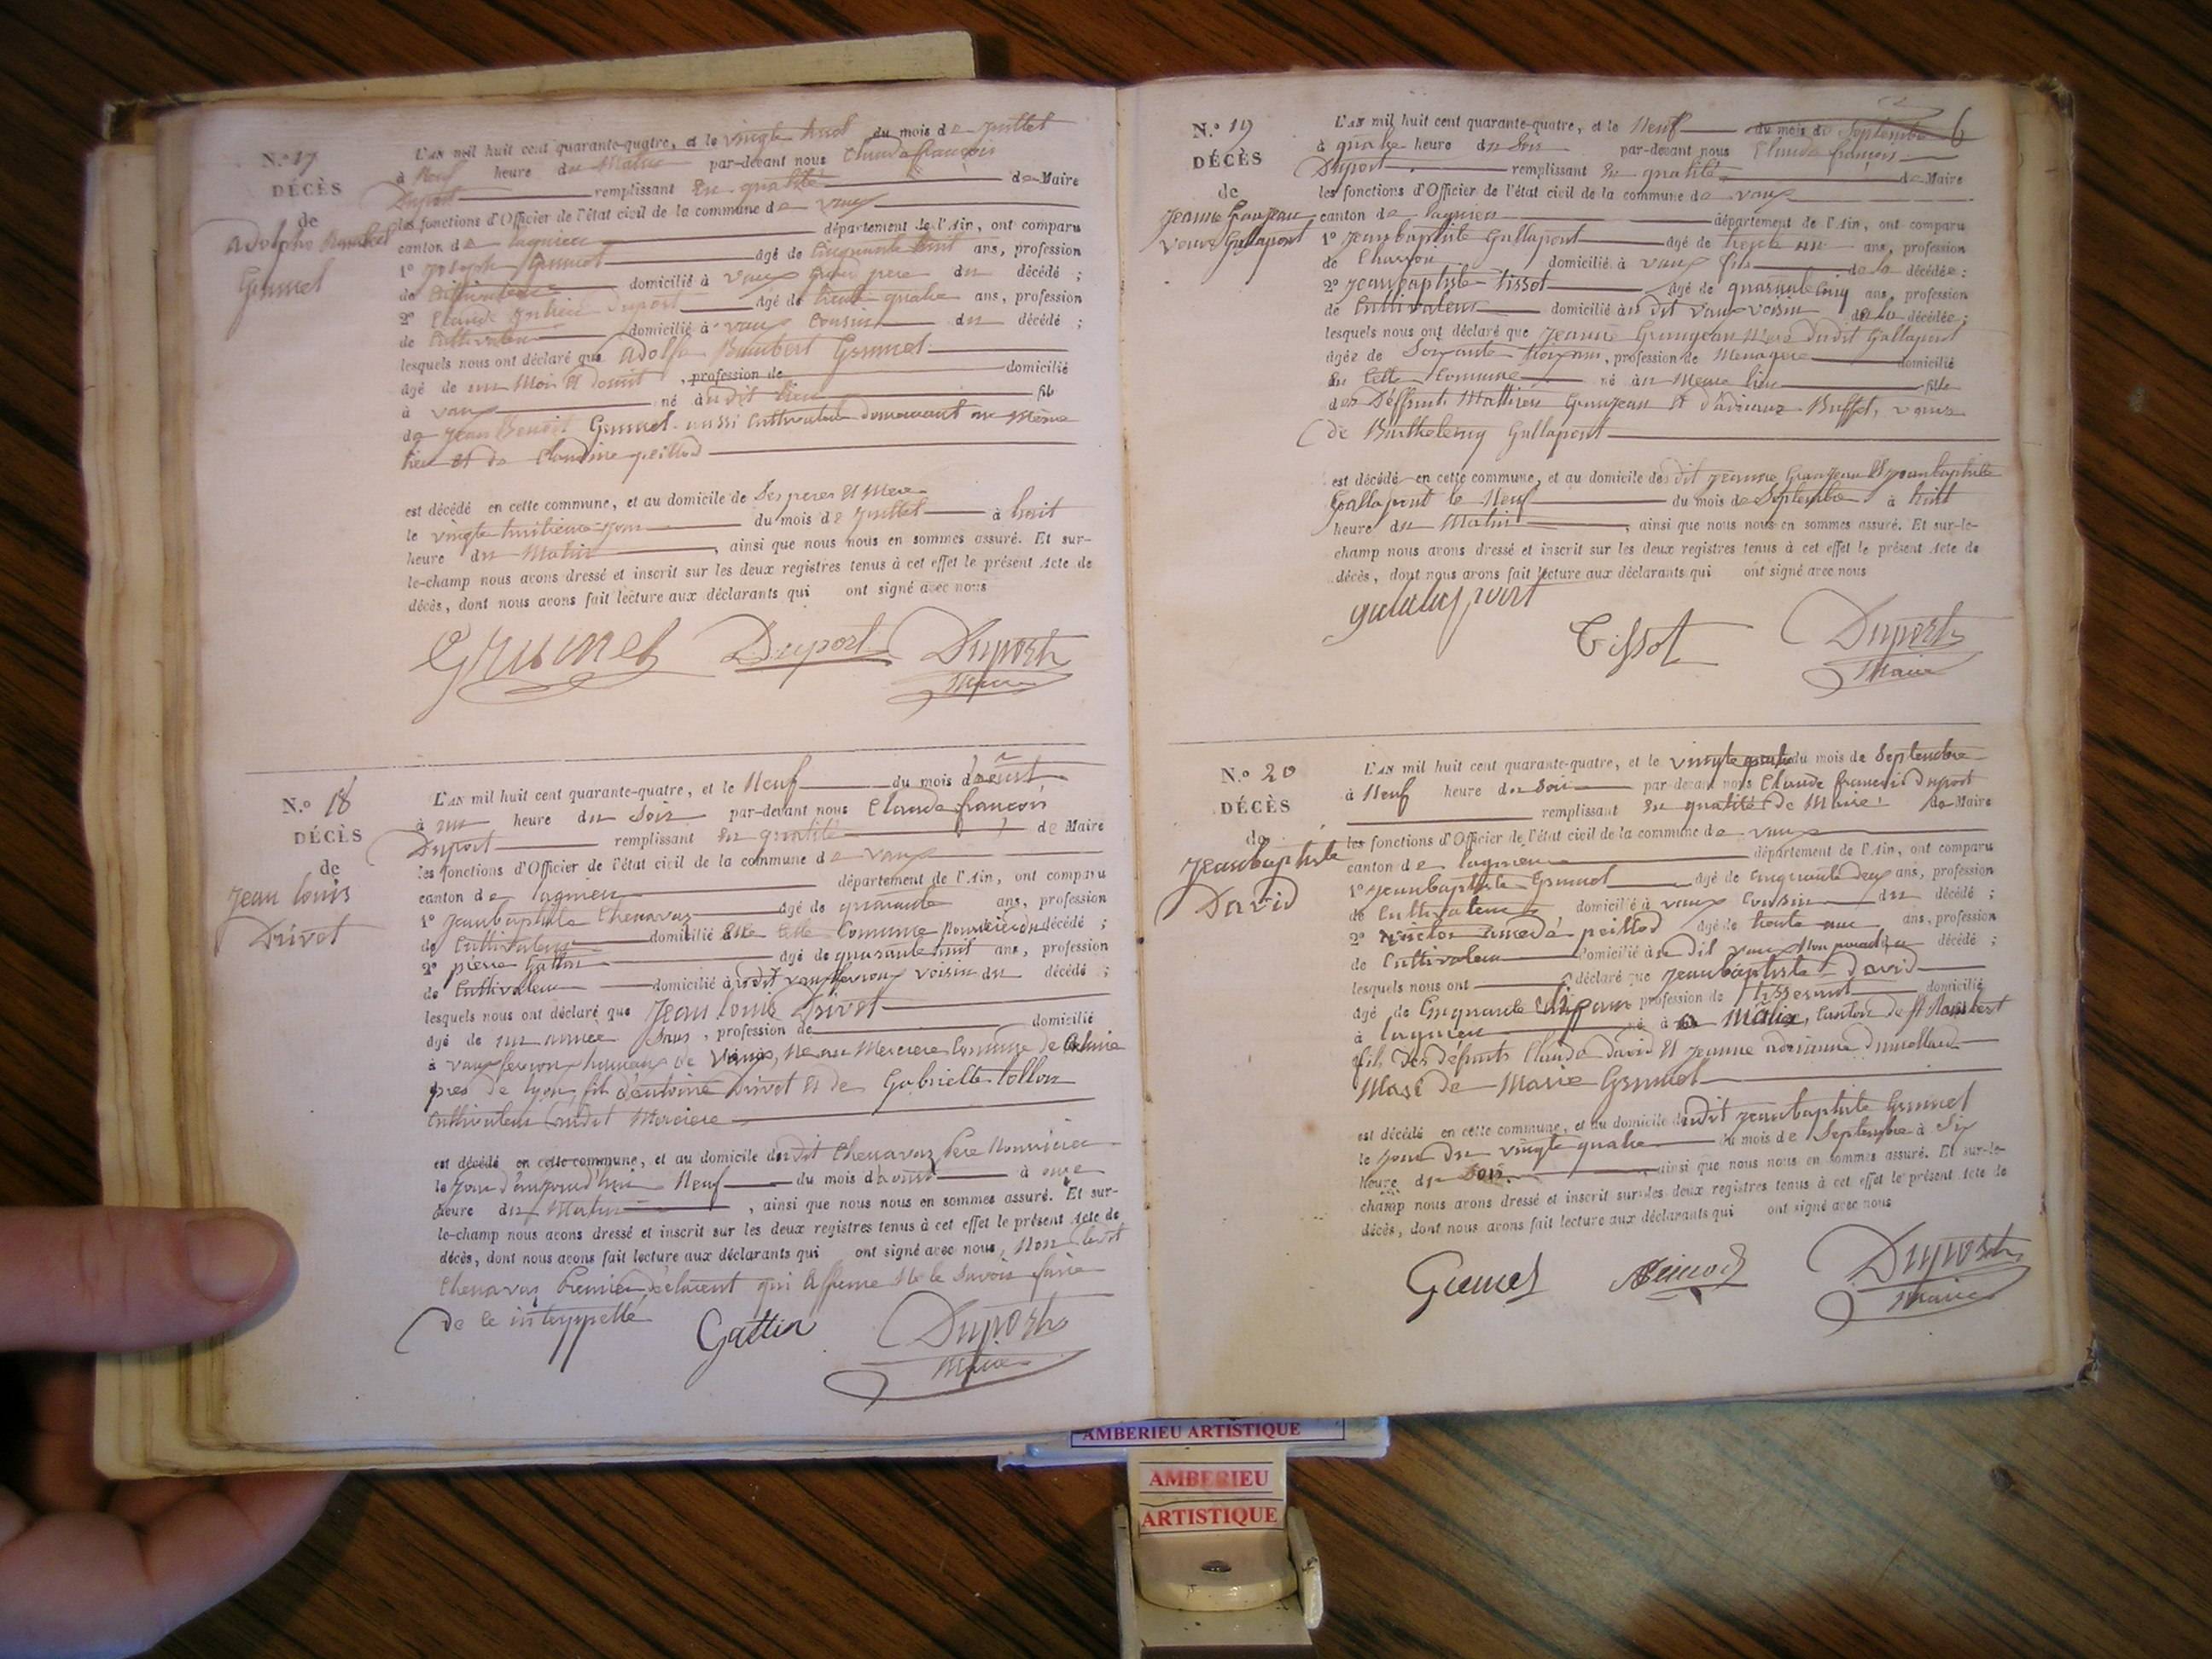 N.° 17
DÉCÈS
de
Adolphe
Grumel
L'AN mil huit cent quarante-quatre, et le vingte huit du mois de juillet
à Neuf heure du Matin par-devant nous Claude françois
Duport remplissant En qualité de Maire
les fonctions d'Officier de l'état civil de la commune de vaux
canton de lagnieu département de l'Ain, ont comparu
1° joseph Grumel âgé de Cinquante huit ans, profession
de Cultivateur domicilié à vaux Grand pere du décédé ;
2° Claude Duport âgé de trente quatre ans, profession
de Cultivateur domicilié à vaux Cousin du décédé ;
lesquels nous ont déclaré que Adolphe Grumel
âgé de un Mois et demit , profession de domicilié
à vaux né au dit lieu fils
de Jean Benoit Grumel aussi Cultivateur demeurant au Même
lieu et de Claudine peillod
est décédé en cette commune, et au domicile de Ses peres et Mere
le vingte huitieme jour du mois de juillet à huit
heure du Matin , ainsi que nous nous en sommes assuré. Et sur-
le-champ nous avons dressé et inscrit sur les deux registres tenus à cet effet le présent Acte de
décès, dont nous avons fait lecture aux déclarants qui ont signé avec nous
Grumel Duport Duport
Maire
N.° 18
DÉCÈS
de
Jean louis
Drivet
L'AN mil huit cent quarante-quatre, et le Neuf du mois d'aoust
à une heure du Soir par-devant nous Claude françois
Duport remplissant En qualité de Maire
les fonctions d'Officier de l'état civil de la commune de vaux
canton de lagnieu département de l'Ain, ont comparu
1° jeanbaptiste Chenavas âgé de quarante ans, profession
de Cultivateur domicilié Cette Commune Nourricier du décédé ;
2° pierre Gattin âgé de quarante huit ans, profession
de Cultivateur domicilié audit vaux fevroux voisin du décédé ;
lesquels nous ont déclaré que Jean louis Drivet
âgé de une année , profession de domicilié
à vaux fevroux hameau de vaux, Né au Merciere Commune de
pres de lyon, fils d'antoine Drivet et de Gabrielle tollon
Cultivateur audit Merciere
est décédé en cette commune, et au domicile dudit Chenavas Pere Nourricier
le jour d'aujourd'hui Neuf du mois d'aoust à onze
heure du Matin , ainsi que nous nous en sommes assuré. Et sur-
le-champ nous avons dressé et inscrit sur les deux registres tenus à cet effet le présent Acte de
décès, dont nous avons fait lecture aux déclarants qui ont signé avec nous, Non ledit
Chenavas Premier déclarent qui Affirme Ne le Savoir faire
de ce interppelle
Gattin Duport
Maire
6
N.° 19
DÉCÈS
de
Jeanne Granjean
veuve Gallapont
L'AN mil huit cent quarante-quatre, et le Neuf du mois de Septembre
à quatre heure du Soir par-devant nous Claude françois
Duport remplissant En qualité de Maire
les fonctions d'Officier de l'état civil de la commune de vaux
canton de lagnieu département de l'Ain, ont comparu
1° jeanbaptiste Gallapont âgé de trente un ans, profession
de Charron domicilié à vaux fils de la décédée ;
2° jeanbaptiste tissot âgé de quarante cinq ans, profession
de Cultivateur domicilié au dit vaux voisin de la décédée ;
lesquels nous ont déclaré que Jeanne Grangean Mere dudit Gallapont
âgée de Soixante trois ans, profession de Menagere domicilié
En Cette Commune né au Meme lieu fille
des Deffunts Mathieu Granjean et Buffet, veuve
de Barthelemy Gallapont
est décédé en cette commune, et au domicile des dit jeanne Granjean et jeanbaptiste
Gallapont le Neuf du mois de Septembre à huit
heure du Matin , ainsi que nous nous en sommes assuré. Et sur-le-
champ nous avons dressé et inscrit sur les deux registres tenus à cet effet le présent Acte de
décès, dont nous avons fait lecture aux déclarants qui ont signé avec nous
Tissot Duport
Maire
N.° 20
DÉCÈS
de
Jeanbaptiste
David
L'AN mil huit cent quarante-quatre, et le vingte quatre du mois de Septembre
à Neuf heure du Soir par-devant nous Claude francois Duport
remplissant En qualité de Maire de Maire
les fonctions d'Officier de l'état civil de la commune de vaux
canton de lagnieu département de l'Ain, ont comparu
1° jeanbaptiste Grumel âgé de cinquante deux ans, profession
de Cultivateur domicilié à vaux Cousin du décédé ;
2° victor amedé peillod âgé de trente ans, profession
de Cultivateur domicilié au dit vaux Non parent du décédé ;
lesquels nous ont déclaré que jeanbaptiste David
âgé de Cinquante ans profession de tisserant domicilié
à lagnieu né à Canton de St Rambert
fils des défunts Claude David et jeanne
Mari de Marie Grumel
est décédé en cette commune, et au domicile dudit jeanbaptiste Grumel
le jour du vingte quatre du mois de Septembre à Six
heure du Soir , ainsi que nous nous en sommes assuré. Et sur-le-
champ nous avons dressé et inscrit sur les deux registres tenus à cet effet le présent Acte de
décès, dont nous avons fait lecture aux déclarants qui ont signé avec nous
Grumel Duport
Maire
AMBERIEU ARTISTIQUE
AMBERIEU
ARTISTIQUE